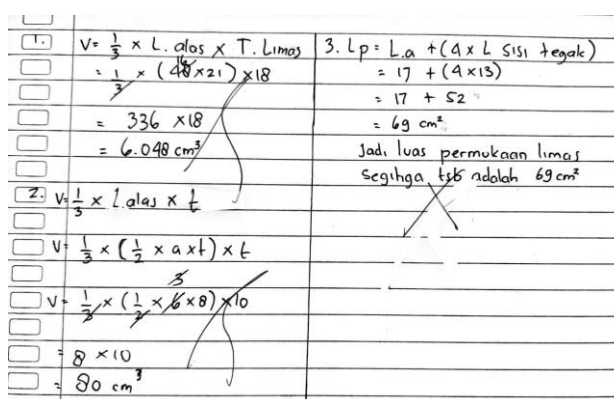 1. V = 1/3 x L. alas x T. Limas
= 1/3 x (48 x 21) x 18
16
= 336 x 18
= 6.048 cm³
2. V = 1/3 x l. alas x t
V = 1/3 x (1/2 x a x t) x t
3
V = 1/3 x (1/2 x 6 x 8) x 10
= 8 x 10
= 80 cm³
3. Lp = L.a + (4 x L sisi tegak)
= 17 + (4 x 13)
= 17 + 52
= 69 cm²
Jadi luas permukaan limas
Segihga tsb adalah 69 cm²